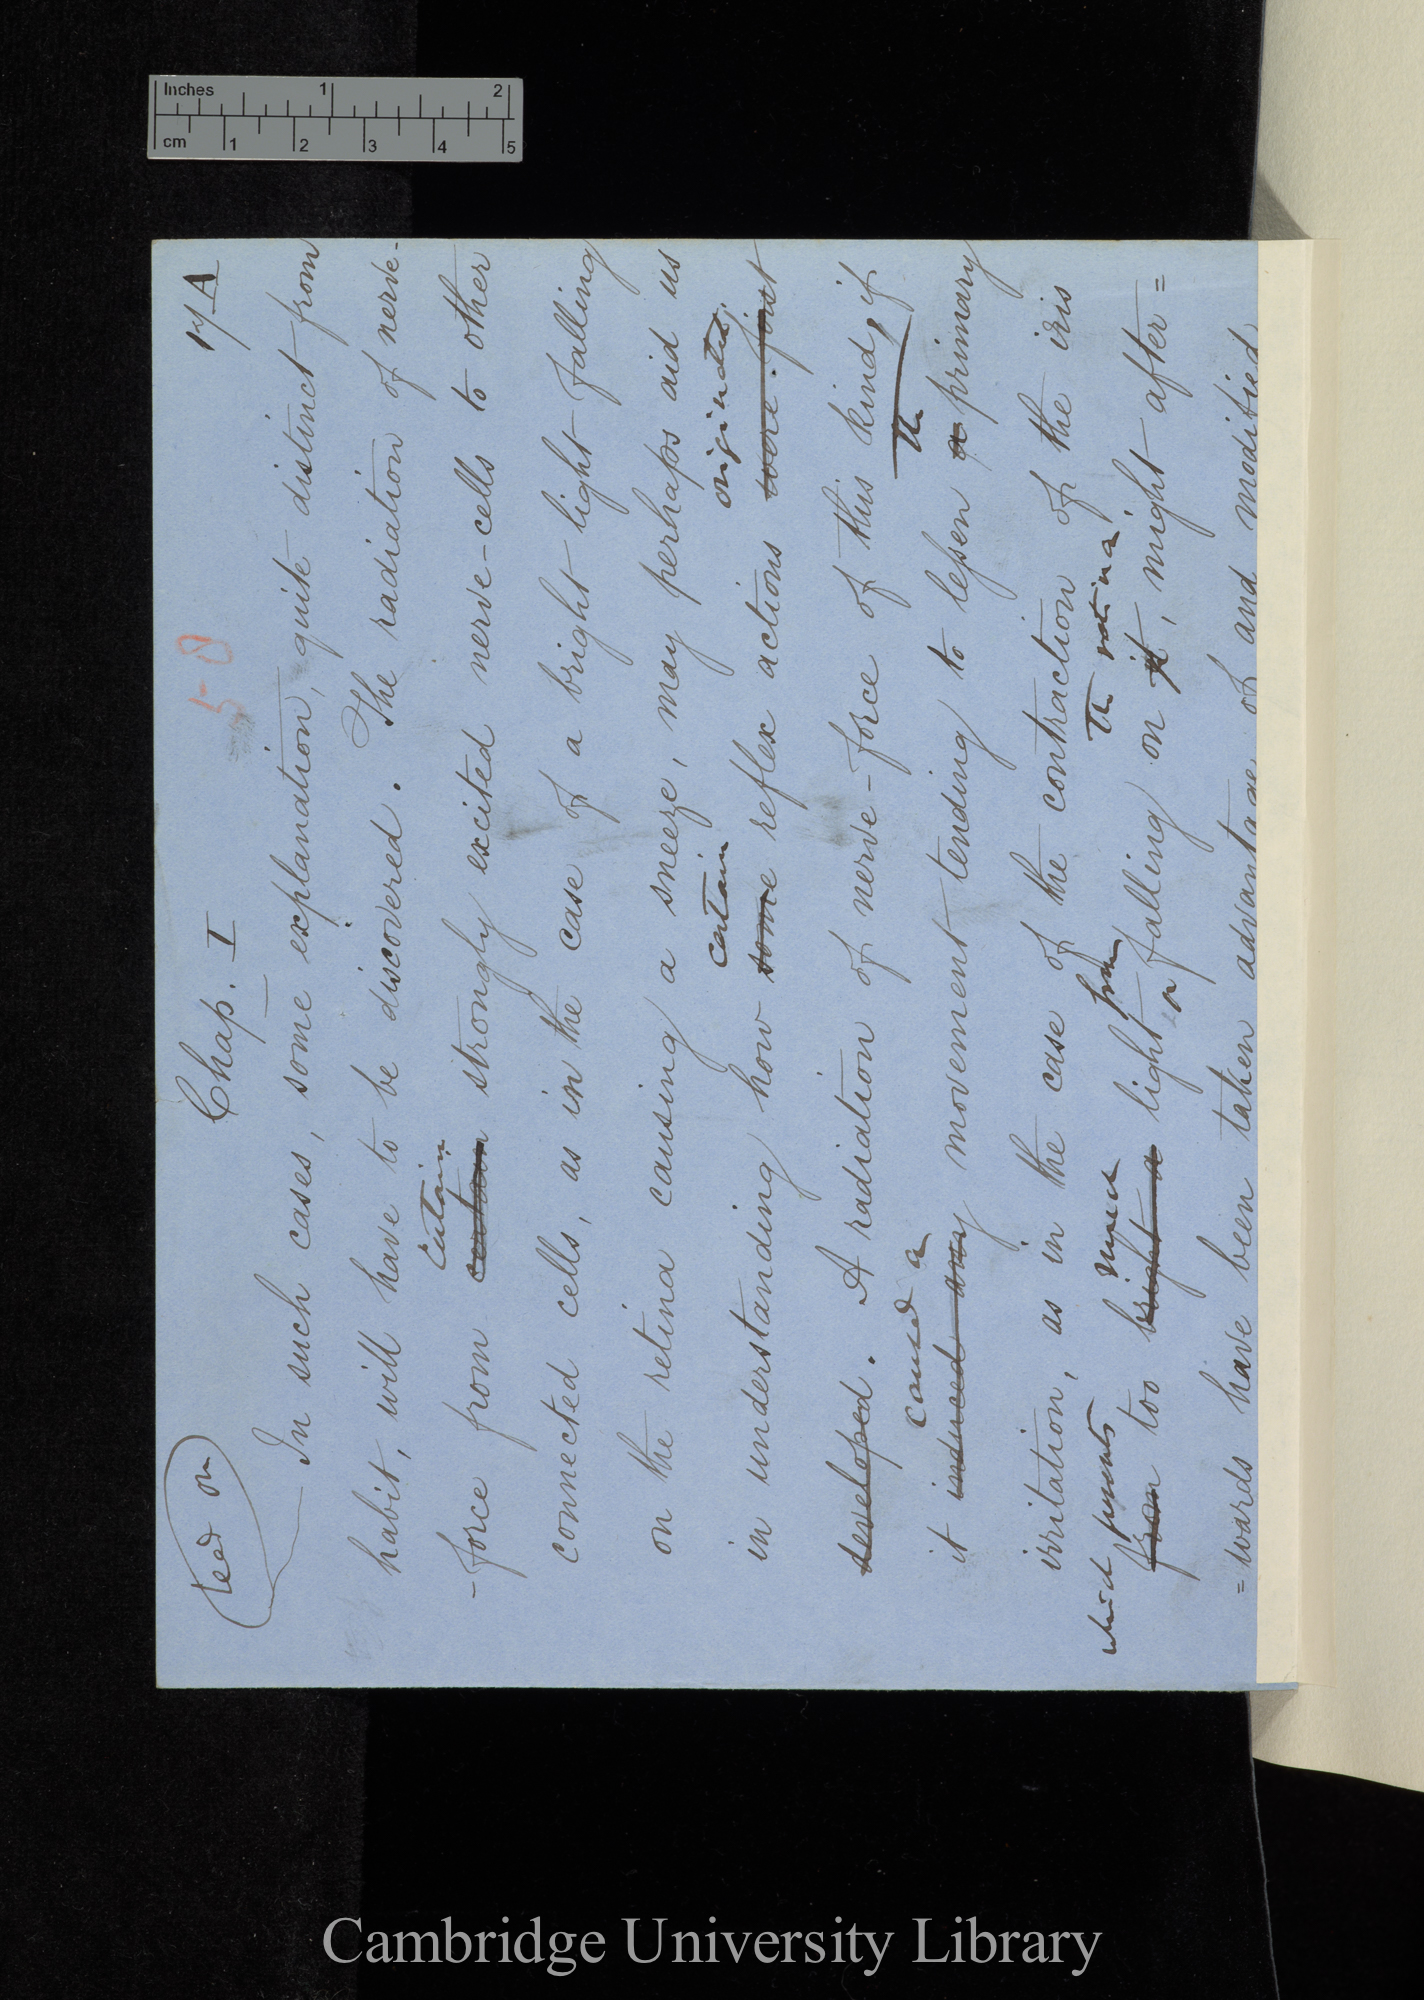 Inches 1 2
cm 1 2 3 4 5
read on
Chap. I
17A
50
In such cases, some explanation, quite distinct from
habit, will have to be discovered. The radiation of nerve-
certain
-force from certain strongly excited nerve-cells to other
connected cells, as in the case of a bright light falling
on the retina causing a sneeze, may perhaps aid us
certain originated.
in understanding how some reflex actions were first
developed. A radiation of nerve-force of this kind, if
caused a the
it induced any movement tending to lessen a primary
irritation, as in the case of the contraction of the iris
which prevents much from the retina,
from too bright a light falling on it, might after=
on
=wards have been taken advantage of and modified
Cambridge University Library